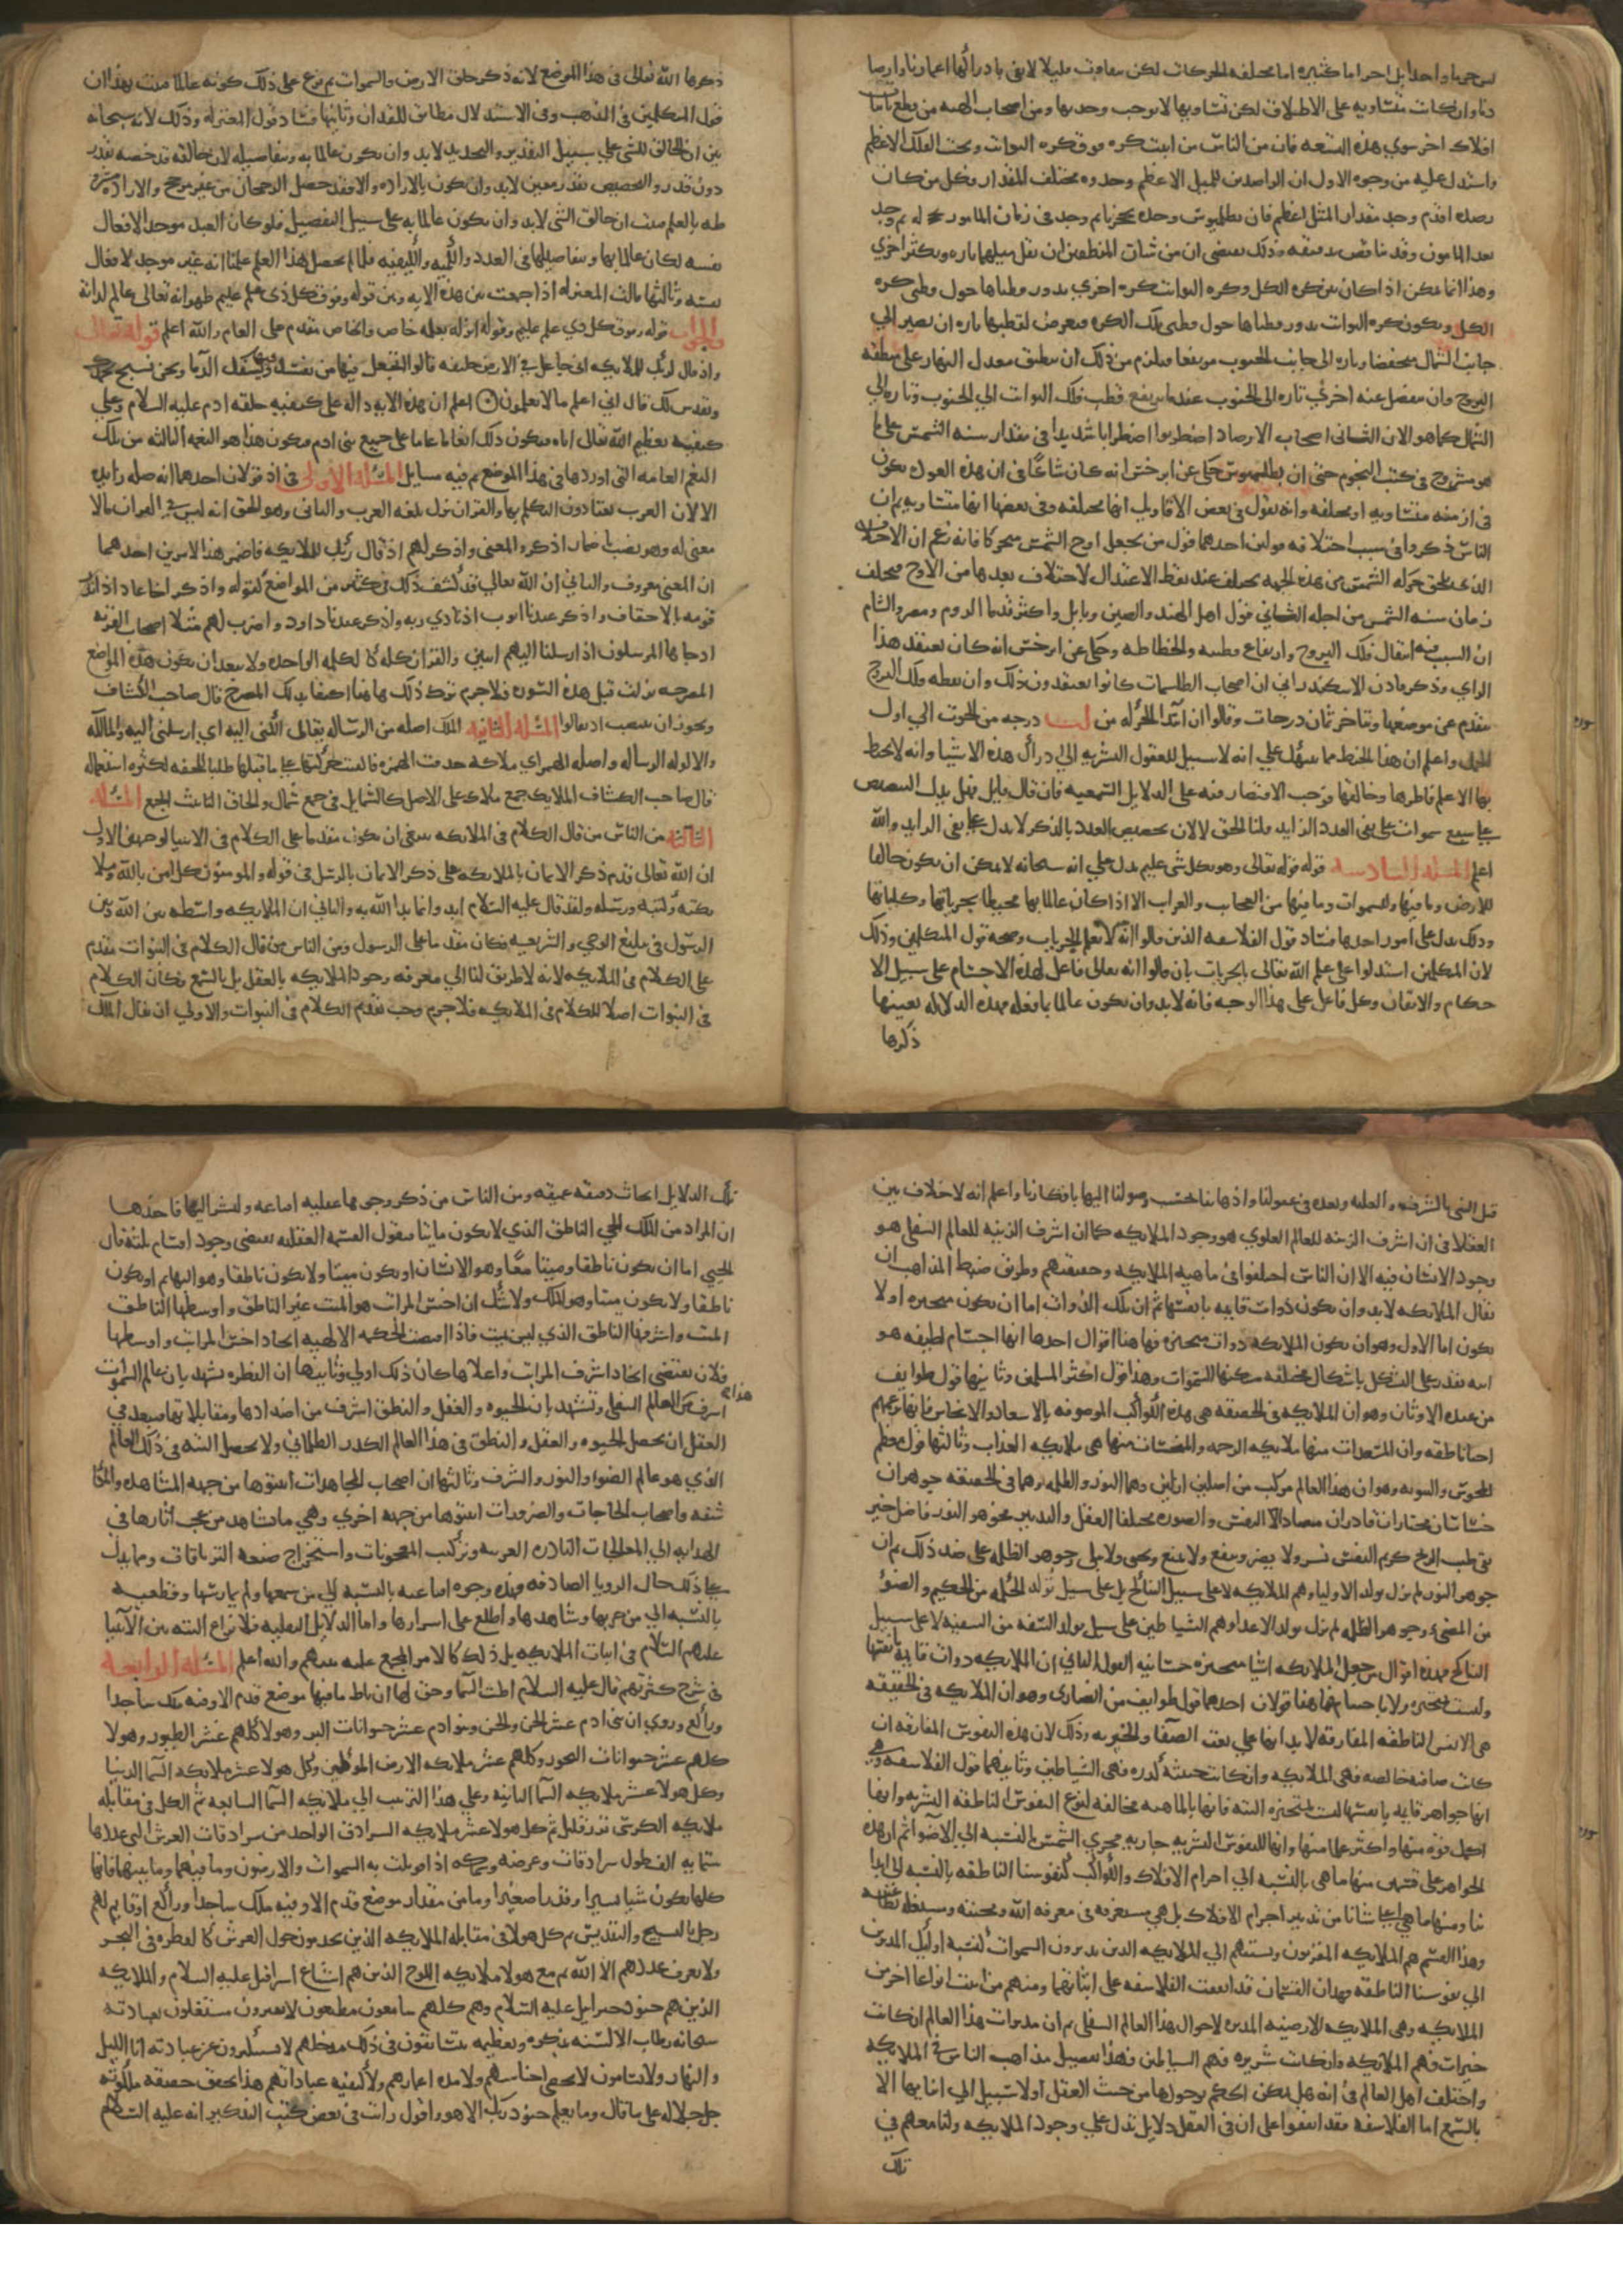 ليس جرما واحدا بل اجراما كثيره اما مختلفه الحركات لكن بتفاوت قليل لا تفى بادراكها اعمارنا وارصا
دنا وان كانت متساويه على الاطلاق لكن تساويها لا يوجب وحدتها ومن اصحاب الهيه من قطع باثبات
افلاك اخر سوي هذه التسعه فان من الناس من اثبت كره فوق كره الثوابت وتحت الفلك الاعظم
واستدل عليه من وجوه الاول ان الراصدين للميل الاعظم وجدوه مختلف المقدار فكل من كان
رصده اقدم وجد مقدار الميل اعظم فان بطليموس وجده ثم وجد في زمان المامون ثم وجد
بعد المامون وقد تناقص بدقيقه وذلك يقتضي ان من شان المنطقتين ان يقل ميلهما تاره ويكثر اخري
وهذا انما يمكن اذا كان بين كره الكل وكره الثوابت كره اخري يدور قطباها حول قطبي كره
الكل ويكون كره الثوابت يدور قطباها حول قطبي تلك الكره فيعرض لقطبها تاره ان يصير الي
جانب الشمال منخفضا وتاره الى جانب الجنوب مرتفعا فيلزم من ذلك ان ينطبق معدل النهار على منطقه
البروج وان ينفصل عنه اخري تاره الى الجنوب عندما يرتفع قطب فلك الثوابت الي الجنوب وتاره الي
الشمال كما هو الان الثاني اصحاب الارصاد اضطربوا اضطرابا شديدا في مقدار سنه الشمس على ما
هو مشروح في كتب النجوم حتى ان بطلميوس حكى عن ابرخس انه كان شاكا في ان هذه العوده تكون
في ازمنه متساويه او مختلفه وانه يقول في بعض الاقاويل انها مختلفه وفى بعضها انها متساويه ثم ان
الناس ذكروا في سبب اختلافه قولين احدهما قول من يجعل اوج الشمس متحركا فانه زعم ان الاختلاف
الذي يلحق حركه الشمس من هذه الجهه يختلف عند نقطه الاعتدال لاختلاف بعدها من الاوج فيختلف
زمان سنه الشمس من اجله الثاني قول اهل الهند والصين وبابل واكثر قدما الروم ومصر والشام
ان السبب فيه انتقال فلك البروج وارتفاع قطبيه وانحطاطه وحكى عن ابرخس انه كان يعتقد هذا
الراي وذكر الاسكندراني ان اصحاب الطلسمات كانوا يعتقدون ذلك وان نقطه فلك البروج
تتقدم عن موضعها وتتاخر ثمان درجات وقالوا ان ابتدا الحركه من كب درجه من الحوت الي اول
الحمل واعلم ان هذا الخبط مما ينبهك علي انه لا سبيل للعقول البشريه الي ادراك هذه الاشيا وانه لا يحيط
بها الا علم فاطرها وخالقها فوجب الاقتصار فيه على الدلايل السمعيه فان قال قايل فهل يدل التنصيص
علي سبع سموات على نفى العدد الزايد قلنا الحق لا لان تخصيص العدد بالذكر لا يدل علي نفى الزايد والله
اعلم المسئله السادسه قوله تعالى وهو بكل شي عليم يدل علي انه سبحانه لا يمكن ان يكون خالقا
للارض وما فيها وللسموات وما فيها من العجايب والغرايب الا اذا كان عالما بها محيطا بجزياتها وكلياتها
وذلك يدل على امور احدها فساد قول الفلاسفه الذين قالوا انه لا يعلم الجزيات وصحه قول المتكلمين وذلك
لان المتكلمين استدلوا على علم الله تعالى بالجزيات بان قالوا انه تعالى فاعل لهذه الاجسام على سبيل الا
حكام والاتقان وكل فاعل على هذا الوجه فانه لا بد وان يكون عالما بما فعله وهذه الدلاله بعينها
ذكرها
ذكرها الله تعالى في هذا الموضع لانه ذكر خلق الارض والسموات ثم فرع على ذلك كونه عالما فثبت بهذا ان
قول المتكلمين في المذهب وفي الاستدلال مطابق للقران وثانيها فساد قول المعتزله وذلك لانه سبحانه
بين ان الخالق للشي علي سبيل التقدير والتحديد لا بد وان يكون عالما به وبتفاصيله لان خالقه قد خصه بقدر
دون قدر والتخصيص بقدر معين لا بد وان يكون بالاراده والا فقد حصل الرجحان من غير مرجح والاراده مشرو
طه بالعلم فثبت ان خالق الشي لا بد وان يكون عالما به علي سبيل التفصيل فلو كان العبد موجدا لافعال
نفسه لكان عالما بها وبتفاصيلها في العدد والكميه والكيفيه فلما لم يحصل هذا العلم علمنا انه غير موجد لافعال
نفسه وثالثها قالت المعتزله اذا جمعت بين هذه الايه وبين قوله وفوق كل ذي علم عليم ظهر انه تعالى عالم لذاته
والجواب قوله وفوق كل ذي علم عليم وقوله انزله بعلمه خاص والخاص مقدم على العام والله اعلم قوله تعالى
واذ قال ربك للملايكه اني جاعل في الارض خليفه قالوا اتجعل فيها من يفسد فيها ويسفك الدما ونحن نسبح بحمدك
ونقدس لك قال اني اعلم ما لا تعلمون اعلم ان هذه الايه داله على كيفيه خلقه ادم عليه السلام وعلي
كيفيه تعظيم الله تعالى اياه فيكون ذلك انعاما عاما على جميع بني ادم فيكون هذا هو النعمه الثالثه من تلك
النعم العامه التي اوردها في هذا الموضع ثم فيه مسايل المسئله الاولى في اذ قولان احدهما انه صله زايده
الا ان العرب يعتادون التكلم بها والقران نزل بلغه العرب والثاني وهو الحق انه ليس في القران ما لا
معنى له وهو نصب باضمار اذكر والمعنى واذكر لهم اذ قال ربك للملايكه فاضمر هذا لامرين احدهما
ان المعنى معروف والثاني ان الله تعالي قد كشف ذلك في كثير من المواضع كقوله واذكر اخا عاد اذ انذر
قومه بالاحقاف واذكر عبدنا ايوب اذ نادي ربه واذكر عبدنا داود واضرب لهم مثلا اصحاب القريه
اذ جاها المرسلون اذ ارسلنا اليهم اثنين والقران كله كالكلمه الواحده ولا يبعد ان يكون هذه المواضع
المصرحه نزلت قبل هذه السوره فلا جرم ترك ذلك هاهنا اكتفا بذلك المصرح قال صاحب الكشاف
ويجوز ان ينتصب اذ بقالوا المسئله الثانيه الملك اصله من الرساله يقال الكنى اليه اي ارسلني اليه والمالكه
والالوكه الرساله واصله الهمزه من ملاكه حذفت الهمزه والقيت حركتها على ما قبلها طلبا للخفه لكثره استعماله
قال صاحب الكشاف الملايك جمع ملاك على الاصل كالشمايل في جمع شمال والحاق التا لتانيث الجمع المسئله
الثالثه من الناس من قال الكلام في الملايكه ينبغى ان يكون مقدما على الكلام في الانبيا لوجهين الاول
ان الله تعالى قدم ذكر الايمان بالملايكه على ذكر الايمان بالرسل في قوله والمومنون كل امن بالله وملا
يكته وكتبه ورسله ولقد قال عليه السلام ابدوا بما بدا الله به والثاني ان الملايكه واسطه بين الله وبين
الرسول في تبليغ الوحي والشريعه فكان مقدما على الرسول ومن الناس من قال الكلام في النبوات مقدم
على الكلام في الملايكه لانه لا طريق لنا الي معرفه وجود الملايكه بالعقل بل بالسمع فكان الكلام
في النبوات اصلا للكلام في الملايكه فلا جرم وجب تقديم الكلام في النبوات والاولي ان يقال الملك
قبل النبي بالشرف والعليه وبعده في عقولنا واذهاننا بحسب وصولنا اليها بافكارنا واعلم انه لا خلاف بين
العقلا في ان اشرف الرتبه للعالم العلوي هو وجود الملايكه كما ان اشرف الرتبه للعالم السفلى هو
وجود الانسان فيه الا ان الناس اختلفوا في ماهيه الملايكه وحقيقتهم وطريق ضبط المذاهب ان
يقال الملايكه لا بد وان يكون ذوات قايمه بانفسها ثم ان تلك الذوات اما ان يكون متحيزه او لا
يكون اما الاول وهو ان يكون الملايكه ذوات متحيزه فهاهنا اقوال احدها انها اجسام لطيفه هو
ايه تقدر على التشكل باشكال مختلفه مسكنها السموات وهذا قول اكثر المسلمين وثانيها قول طوايف
من عبده الاوثان وهو ان الملايكه في الحقيقه هي هذه الكواكب الموصوفه بالاسعاد والانحاس فانها بزعمهم
احيا ناطقه وان المسعدات منها ملايكه الرحمه والمنحسات منها هي ملايكه العذاب وثالثها قول معظم
المجوس والثنويه وهو ان هذا العالم مركب من اصلين ازليين وهما النور والظلمه وهما في الحقيقه جوهران
حساسان مختاران قادران متضادا النفس والصوره مختلفا الفعل والتدبير فجوهر النور فاضل خير
نقي طيب الريح كريم النفس يسر ولا يضر وينفع ولا يمنع ويحيى ولا يبلى وجوهر الظلمه على ضد ذلك ثم ان
جوهر النور لم يزل يولد الاوليا وهم الملايكه لا على سبيل التناكح بل على سبيل تولد الحكمه من الحكيم والضو
من المضى وجوهر الظلمه لم يزل يولد الاعدا وهم الشياطين على سبيل تولد السفه من السفيه لا على سبيل
التناكح فهذه اقوال من جعل الملايكه اشيا متحيزه جسمانيه القول الثاني ان الملايكه ذوات قايمه بانفسها
وليست بمتحيزه ولا باجسام فهاهنا قولان احدهما قول طوايف من النصارى وهو ان الملايكه في الحقيقه
هي الانفس الناطقه المفارقه لابدانها على نعت الصفا والخيريه وذلك لان هذه النفوس المفارقه ان
كانت صافيه خالصه فهي الملايكه وان كانت خبيثه كدره فهى الشياطين وثانيهما قول الفلاسفه وهي
انها جواهر قايمه بانفسها ليست بمتحيزه البته فانها بالماهيه مخالفه لنوع النفوس الناطقه البشريه وانها
اكمل قوه منها واكثر علما منها وانها للنفوس البشريه جاريه مجري الشمس بالنسبه الي الاضوا ثم ان هذه
الجواهر على قسمين منها ما هي بالنسبه الي اجرام الافلاك والكواكب كنفوسنا الناطقه بالنسبه الى ابدا
ننا ومنها ما هي اعلا شانا من تدبير اجرام الافلاك بل هي مستغرقه في معرفه الله ومحبته ومشتغله بطاعته
وهذا القسم هم الملايكه المقربون ونسبتهم الي الملايكه الذين يدبرون السموات كنسبه اوليك المدبرين
الي نفوسنا الناطقه فهذان القسمان قد اتفقت الفلاسفه على اثباتهما ومنهم من اثبت انواعا اخر من
الملايكه وهى الملايكه الارضيه المدبره لاحوال هذا العالم السفلى ثم ان مدبرات هذا العالم ان كانت
خيرات فهم الملايكه وان كانت شريره فهم الشياطين فهذا تفصيل مذاهب الناس في الملايكه
واختلف اهل العالم في انه هل يمكن الحكم بوجودها من حيث العقل او لا سبيل الي اثباتها الا
بالسمع اما الفلاسفه فقد اتفقوا على ان في العقل دلايل تدل علي وجود الملايكه ولنا معهم في
تلك
تلك الدلايل ابحاث دقيقه عميقه ومن الناس من ذكر وجوها عقليه اقناعيه ولنشر اليها فاحدها
ان المراد من الملك الحي الناطق الذي لا يكون مايتا فنقول القسمه العقليه تقتضى وجود اقسام ثلثه فان
الحي اما ان يكون ناطقا وميتا معا وهو الانسان او يكون ميتا ولا يكون ناطقا وهو البهايم او يكون
ناطقا ولا يكون ميتا وهو الملك ولا شك ان اخس المراتب هو الميت غير الناطق واوسطها الناطق
الميت واشرفها الناطق الذي ليس بميت فاذا اقتضت الحكمه الالهيه ايجاد اخس المراتب واوسطها
فلان تقتضى ايجاد اشرف المراتب واعلاها كان ذلك اولي وثانيها ان الفطره تشهد بان عالم السموات
اشرف من هذا العالم السفلى وتشهد بان الحيوه والعقل والنطق اشرف من اضدادها ومقابلاتها فيبعد في
العقل ان يحصل الحيوه والعقل والنطق في هذا العالم الكدر الظلماني ولا يحصل البته في ذلك العالم
الذي هو عالم الضوا والنور والشرف وثالثها ان اصحاب المجاهدات اثبتوها من جهه المشاهده والمكا
شفه واصحاب الحاجات والضرورات اثبتوها من جهه اخري وهي ما يشاهد من عجيب اثارها في
الهدايه الي المعالجات النادره الغريبه وتركيب المعجونات واستخراج صنعه الترياقات ومما يدل
علي ذلك حال الرويا الصادقه فهذه وجوه اقناعيه بالنسبه الي من سمعها ولم يمارسها وقطعيه
بالنسبه الي من جربها وشاهدها واطلع على اسرارها واما الدلايل النقليه فلا نزاع البته بين الانبيا
عليهم السلام في اثبات الملايكه بل ذلك كالامر المجمع عليه بينهم والله اعلم المسئله الرابعه
في شرح كثرتهم قال عليه السلام اطت السما وحق لها ان تاط ما فيها موضع قدم الا وفيه ملك ساجدا
وراكع وروي ان بني ادم عشر الجن والجن وبنو ادم عشر حيوانات البر وهولا كلهم عشر الطيور وهولا
كلهم عشر حيوانات البحور وكلهم عشر ملايكه الارض الموكلين وكل هولا عشر ملايكه السما الدنيا
وكل هولا عشر ملايكه السما الثانيه وعلي هذا الترتيب الي ملايكه السما السابعه ثم الكل في مقابله
ملايكه الكرسي نزر قليل ثم كل هولا عشر ملايكه السرادق الواحد من سرادقات العرش التي عددها
ستمايه الف طول سرادقات وعرضه وسمكه اذا قوبلت به السموات والارضون وما فيهما وما بينهما فانها
كلها يكون شيا يسيرا وقدرا صغيرا وما من مقدار موضع قدم الا وفيه ملك ساجدا وراكع او قايم لهم
زجل بالتسبيح والتقديس ثم كل هولا في مقابله الملايكه الذين يحومون حول العرش كالقطره في البحر
ولا يعرف عددهم الا الله ثم مع هولا ملايكه اللوح الذين هم اشياع اسرافيل عليه السلام والملايكه
الذين هم جنود جبرايل عليه السلام وهم كلهم سامعون مطيعون لا يفترون مشتغلون بعبادته
سبحانه رطاب الالسنه بذكره وتعظيمه يتسابقون في ذلك مذ خلقهم لا يستكبرون عن عبادته انا الليل
والنهار ولا يسامون لا يحصى اجناسهم ولا مده اعمارهم ولا كيفيه عباداتهم هذا تحقيق حقيقه ملكوته
جل جلاله على ما قال وما يعلم جنود ربك الا هو واقول رايت في بعض كتب التذكير انه عليه السلام